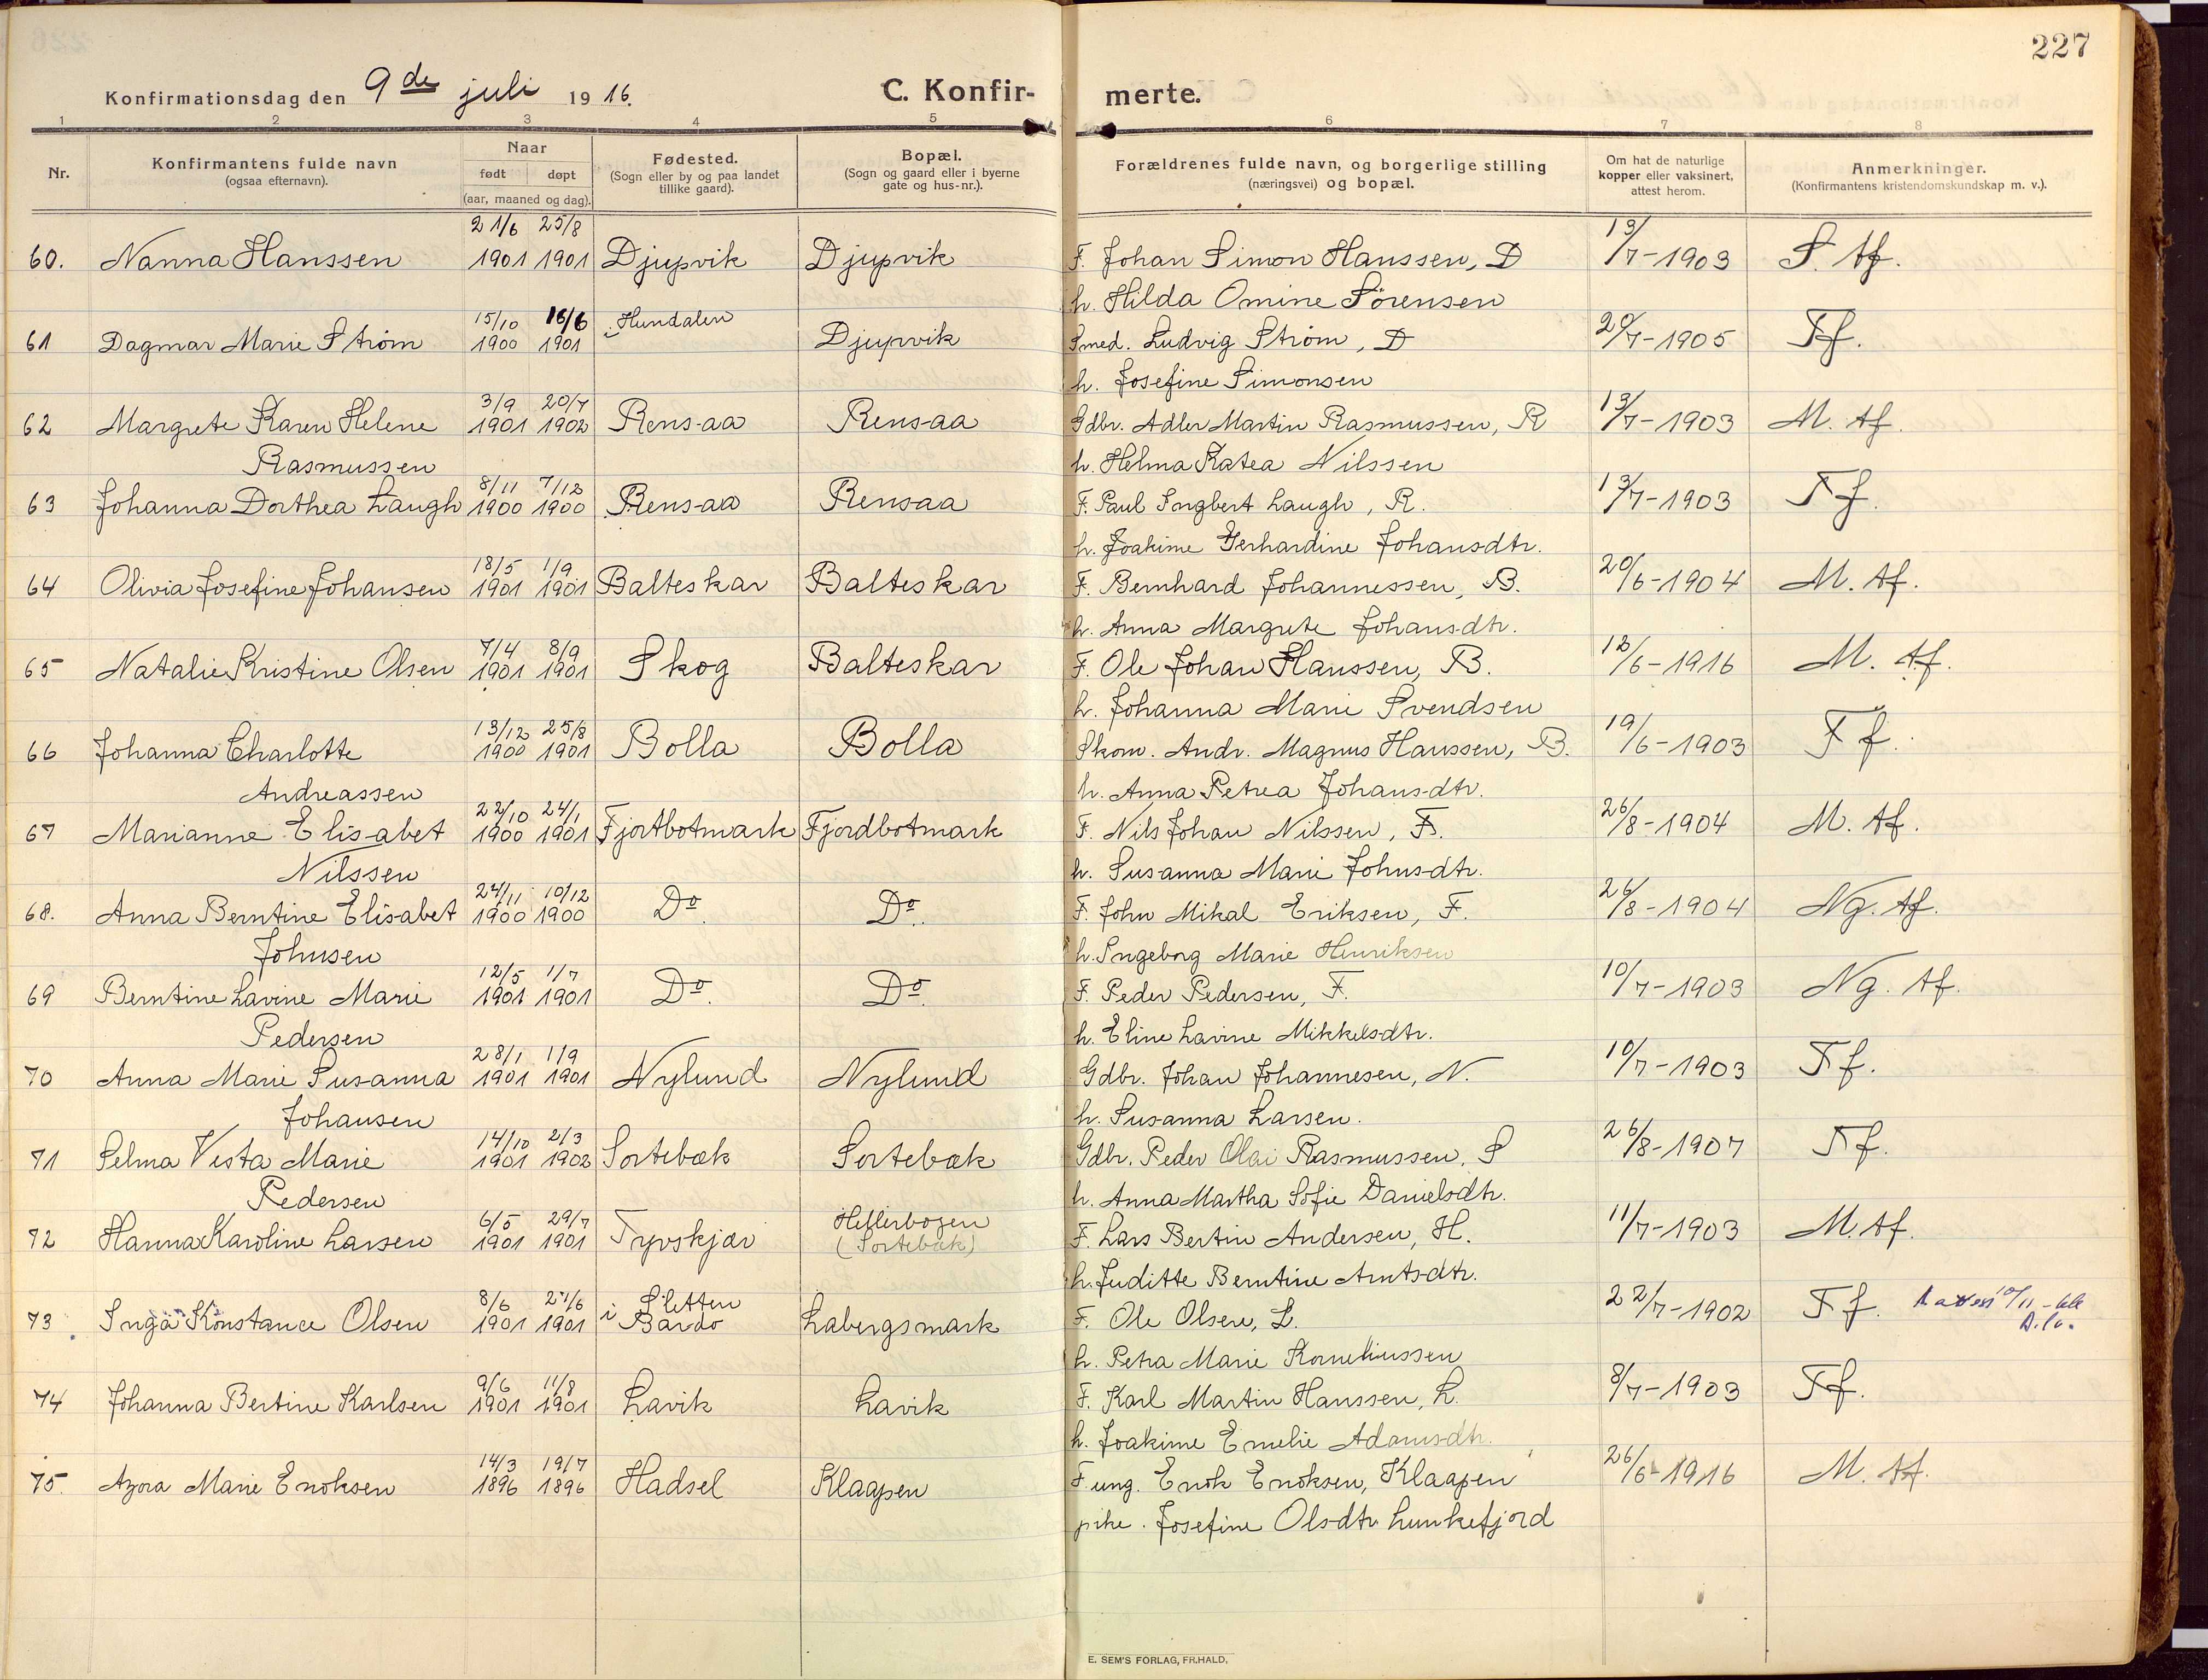 227
Konfirmationsdag den 9de juli 1916.
C. Konfirmerte.
1 2 3 4 5 6 7 8
Nr. Konfirmantens fulde navn (ogsaa efternavn). Naar født døpt (aar, maaned og dag). Fødested. (Sogn eller by og paa landet tillike gaard). Bopæl. (Sogn og gaard eller i byerne gate og hus-nr.). Forældrenes fulde navn, og borgerlige stilling (næringsvei) og bopæl. Om hat de naturlige kopper eller vaksinert, attest herom. Anmerkninger. (Konfirmantens kristendomskundskap m. v.).
21/6 25/8
60. Nanna Hanssen 1901 1901 Djupvik Djupvik F. Johan Simon Hanssen, D 13/7-1903 S. Af.
h. Hilda Omine Sørensen
15/10 16/6 i Hundalen
61 Dagmar Marie Strøm 1900 1901 Djupvik Smed. Ludvig Strøm, D 20/7-1905 Tf.
h. Josefine Simonsen
3/9 20/7
62 Margrete Karen Helene 1901 1902 Rensaa Rensaa Gdbr. Adler Martin Rasmussen, R 13/7-1903 M. Af.
Rasmussen h. Helma Katea Nilssen
8/11 7/12
63 Johanna Dorthea Laugh 1900 1900 Rensaa Rensaa F. Paul Ingbert Laugh, R. 13/7-1903 Tf.
h. Joakime Gerhardine Johansdtr.
18/5 1/9
64 Olivia Josefine Johansen 1901 1901 Balteskar Balteskar F. Bernhard Johannessen, B. 20/6-1904 M. Af.
h. Anna Margrete Johansdtr.
7/4 8/9
65 Natalie Kristine Olsen 1901 1901 Skog Balteskar F. Ole Johan Hanssen, B. 12/6-1916 M. Af.
h. Johanna Marie Svendsen
13/12 25/8
66 Johanna Charlotte 1900 1901 Bolla Bolla Skom. Andr. Magnus Hanssen, B. 19/6-1903 Tf.
Andreassen h. Anna Petrea Johansdtr.
22/10 24/1
67 Marianne Elisabet 1900 1901 Fjortbotmark Fjordbotmark F. Nils Johan Nilssen, F. 26/8-1904 M. Af.
Nilssen h. Susanna Marie Johnsdtr.
24/11 10/12
68. Anna Berntine Elisabet 1900 1900 Do. Do. F. John Mikal Eriksen, F. 26/8-1904 Ng. Af.
Johnsen h. Ingeborg Marie Henriksen
12/5 1/7
69 Berntine Lavine Marie 1901 1901 Do. Do. F. Peder Pedersen, F. 10/7-1903 Ng. Af.
Pedersen h. Eline Lavine Mikkelsdtr.
28/1 1/9
70 Anna Marie Susanna 1901 1901 Nylund Nylund Gdbr. Johan Johannesen, N. 10/7-1903 Tf.
Johansen h. Susanna Larsen.
14/10 2/3
71 Selma Vesta Marie 1901 1902 Sortebæk Sortebæk Gdbr. Peder Olai Rasmussen, S 26/8-1907 Tf.
Pedersen h. Anna Martha Sofie Danielsdtr.
6/5 29/7 Hellerbogen
72 Hanna Karoline Larsen 1901 1901 Tyvskjær (Sortebæk) F. Lars Bertin Andersen, H. 11/7-1903 M. Af.
h. Juditte Berntine Arntsdtr.
8/6 27/6 i Sletten
73 Inga Konstance Olsen 1901 1901 Bardo Labergsmark F. Ole Olsen, L. 22/7-1902 Tf.
h. Petra Marie Korneliussen
9/6 11/8
74 Johanna Bertine Karlsen 1901 1901 Lavik Lavik F. Karl Martin Hanssen, L. 8/7-1903 Tf.
h. Joakime Emelie Adamsdtr.
14/3 19/7
75. Azora Marie Enoksen 1896 1896 Hadsel Klaapen F ung. Enok Enoksen, Klaapen 26/6-1916 M. Af.
pike. Josefine Olsdtr. Lunkefjord
E. SEM'S FORLAG, FR.HALD.